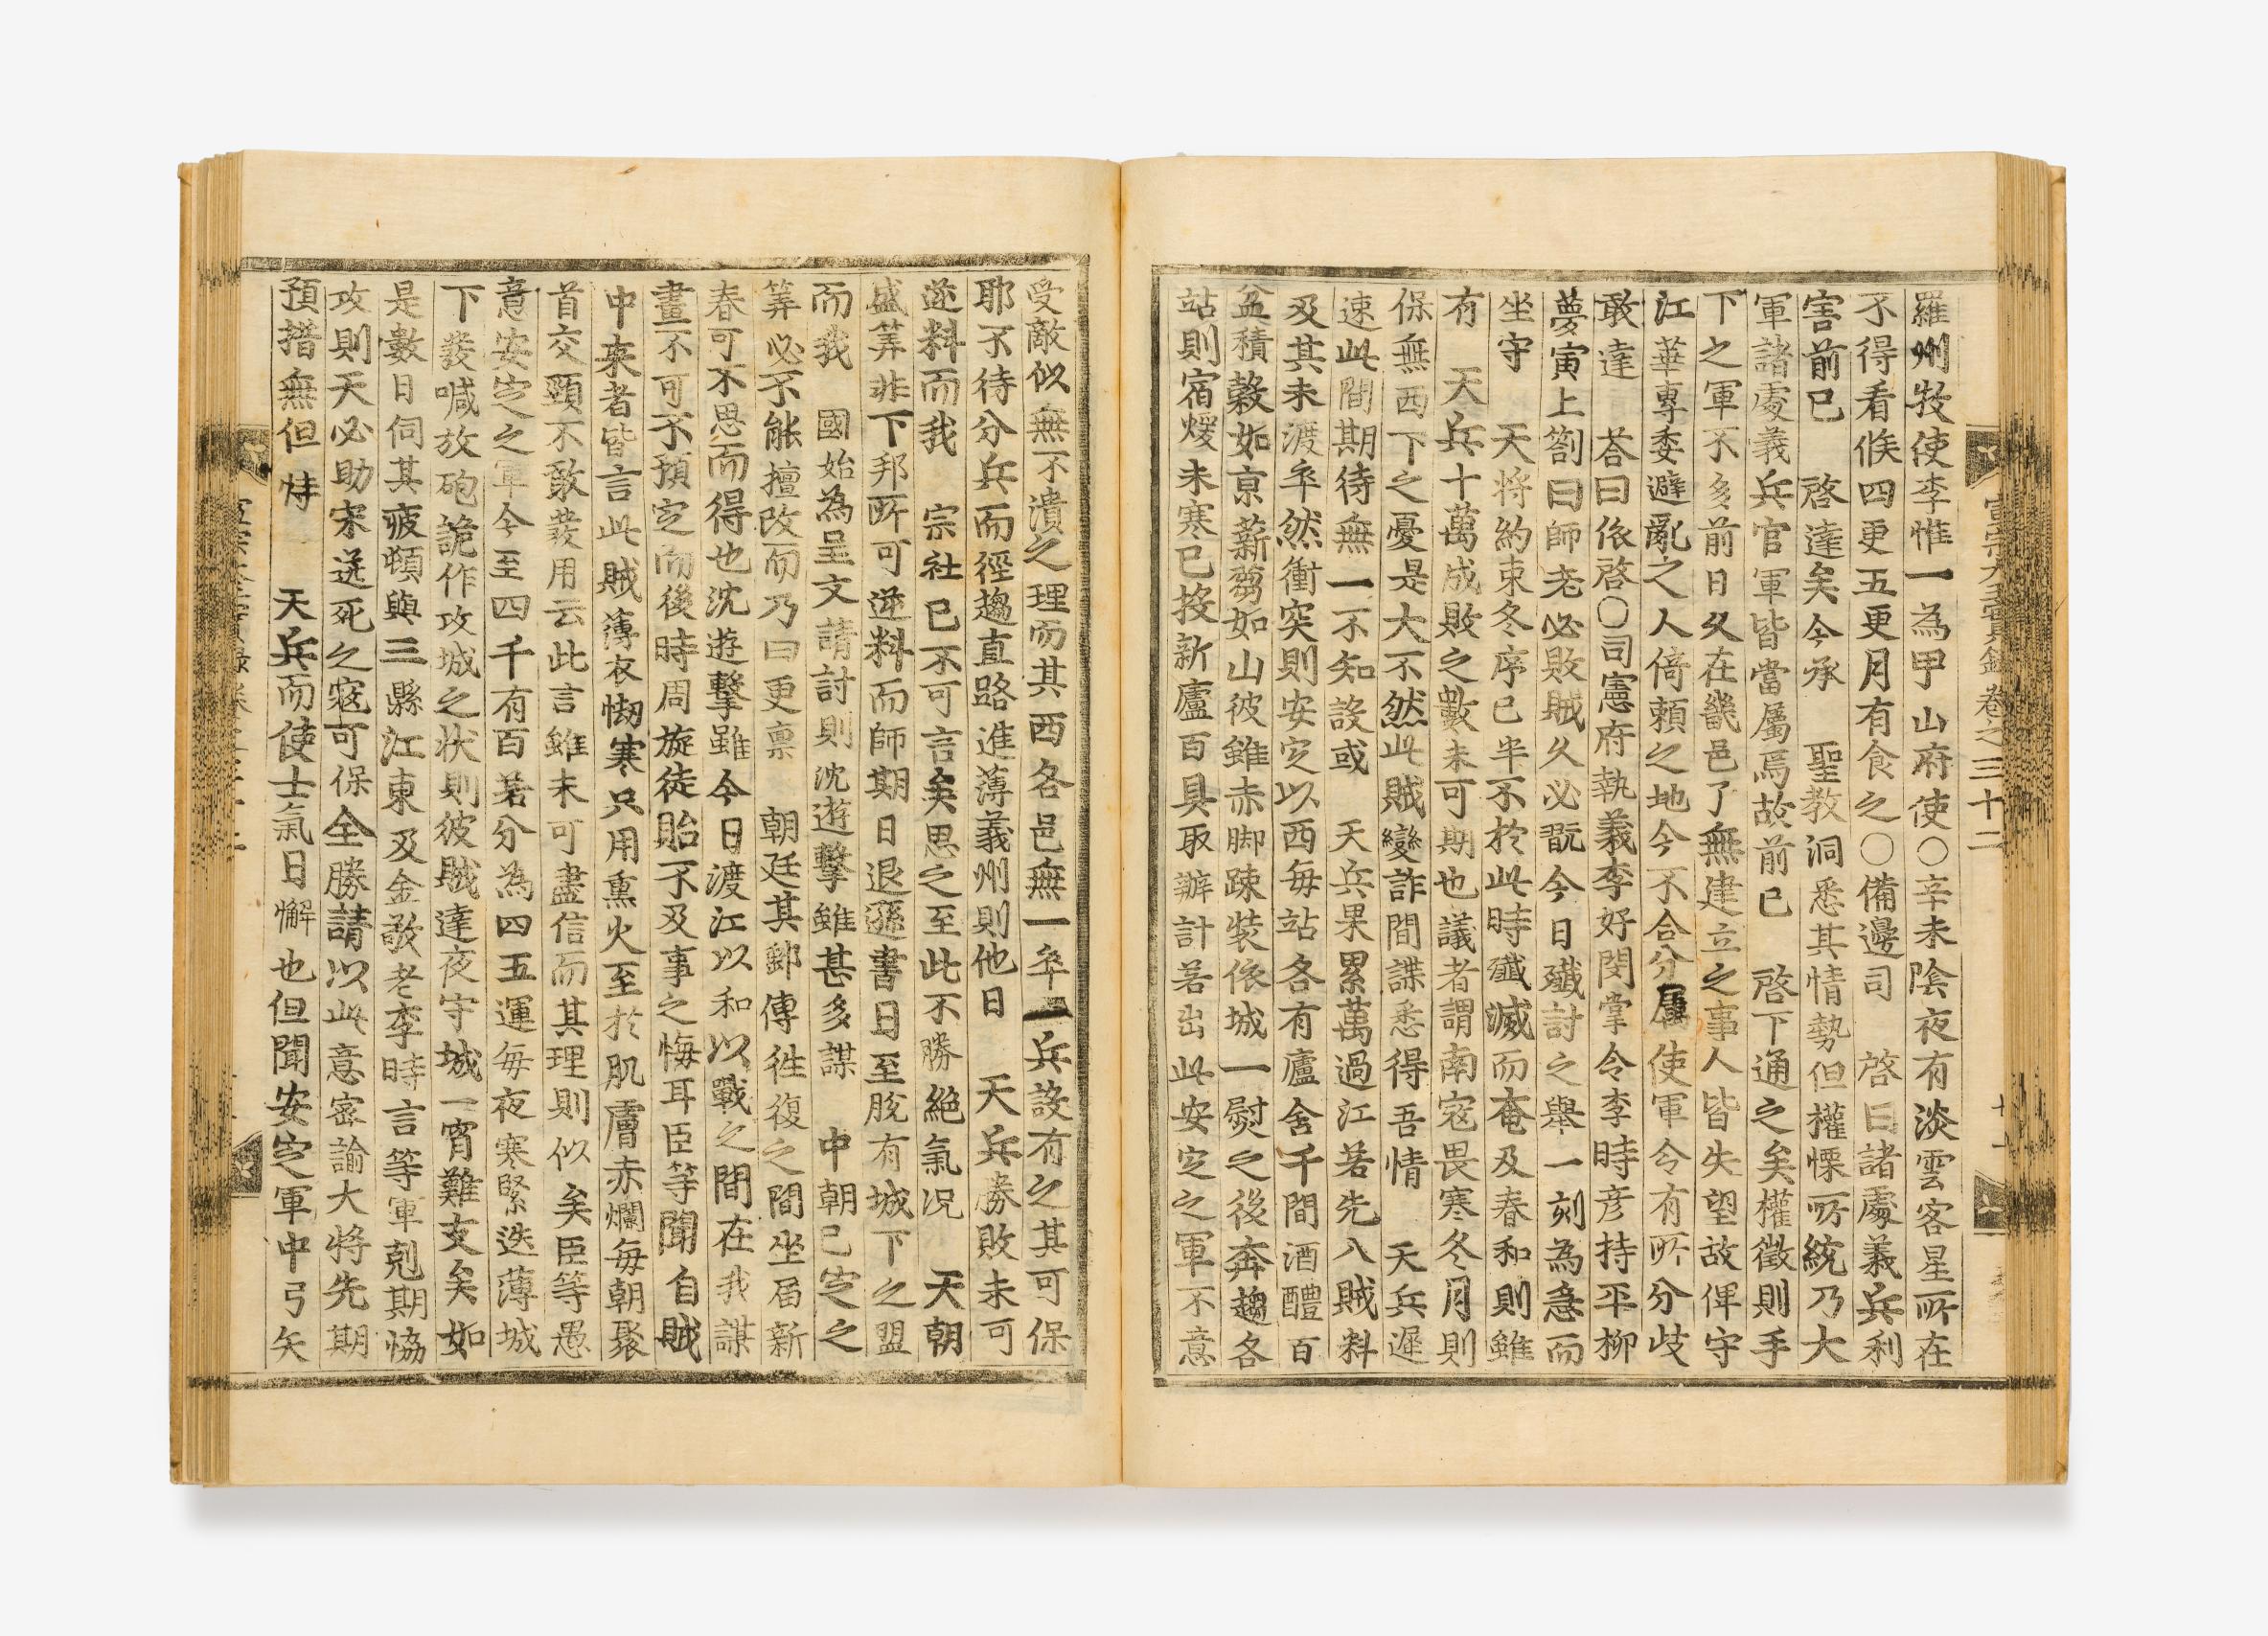 羅州牧使李惟一為甲山府使○辛未陰夜有淡雲客星所在
不得看候四更五更月有食之○備邊司 啓曰諸處義兵利
害前已 啓達矣今承 聖教洞悉其情勢但權慄所統乃大
軍諸處義兵官軍皆當屬焉故前已 啓下通之矣權徵則手
下之軍不多前日久在畿邑了無建立之事人皆失望故俾守
江華專委避亂之人倚賴之地今不合分屬使軍令有所分歧
敢達 荅曰依啓○司憲府執義李好閔掌令李時彦持平柳
夢寅上劄曰師老必敗賊久必翫今日殲討之舉一刻為急而
坐守 天將約束冬序已半不於此時殲滅而奄及春和則雖
有 天兵十萬成敗之數未可期也議者謂南寇畏寒冬月則
保無西下之憂是大不然此賊變詐間諜悉得吾情 天兵遲
速此間期待無一不知設或 天兵果累萬過江若先入賊料
及其未渡卒然衝突則安定以西每站各有廬舍千間酒醴百
盆積穀如京薪芻如山彼雖赤脚踈裝依城一熨之後奔趨各
站則宿煖未寒已投新廬百具取辦計若出此安定之軍不意
受敵似無不潰之理而其西各邑無一卒一兵設有之其可保
耶不待分兵而徑趨直路進薄義州則他日 天兵勝敗未可
逆料而我 宗社已不可言矣思之至此不勝絶氣况 天朝
盛筭非下邦所可逆料而師期日退遜書日至脫有城下之盟
而我 國始為呈文請討則沈遊擊雖甚多謀 中朝已定之
筭必不能擅改而乃曰更禀 朝廷其郵傳徃復之間坐屆新
春可不思而得也沈遊擊雖今日渡江以和以戰之間在我謀
畫不可不預定而後時周旋徒貽不及事之悔耳臣等聞自賊
中來者皆言此賊薄衣㤼寒只用熏火至於肌膚赤爛每朝聚
首交頸不敢發用云此言雖未可盡信而其理則似矣臣等愚
意安定之軍今至四千有百若分為四五運每夜寒緊迭薄城
下發喊放砲詭作攻城之状則彼賊達夜守城一宵難支矣如
是數日伺其疲頓與三縣江東及金敬老李時言等軍剋期恊
攻則天必助宋送死之寇可保全勝請以此意密諭大將先期
預措無但恃 天兵而使士氣日懈也但聞安定之軍中弓矢
宣宗大王實錄卷之三十二